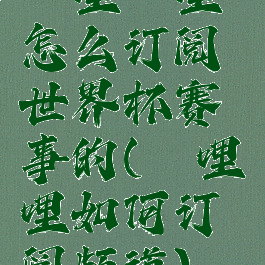 哩 哩
怎么订阅
世界杯赛
事的( 哩
哩如何订
阅频道)